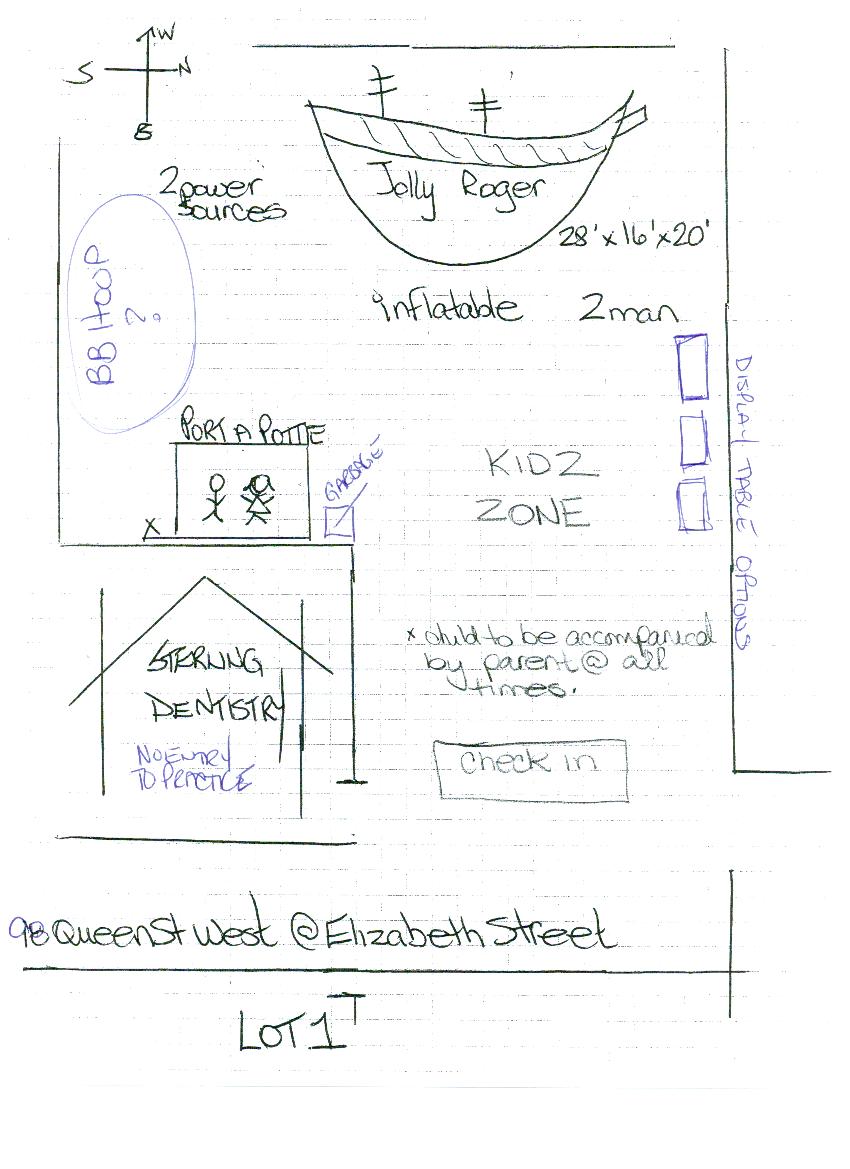 W
S N
E
2 power
sources
Jolly Roger
28'x16'x20'
BB HOOP
?
inflatable 2 man
PORT A POTTIE
GARBAGE
X
DISPLAY TABLE OPTIONS
KIDZ
ZONE
x child to be accompanied
by parent @ all
times.
STERLING
DENTISTRY
NO ENTRY
TO PRACTICE
check in
98 Queen St West @ Elizabeth Street
LOT 1